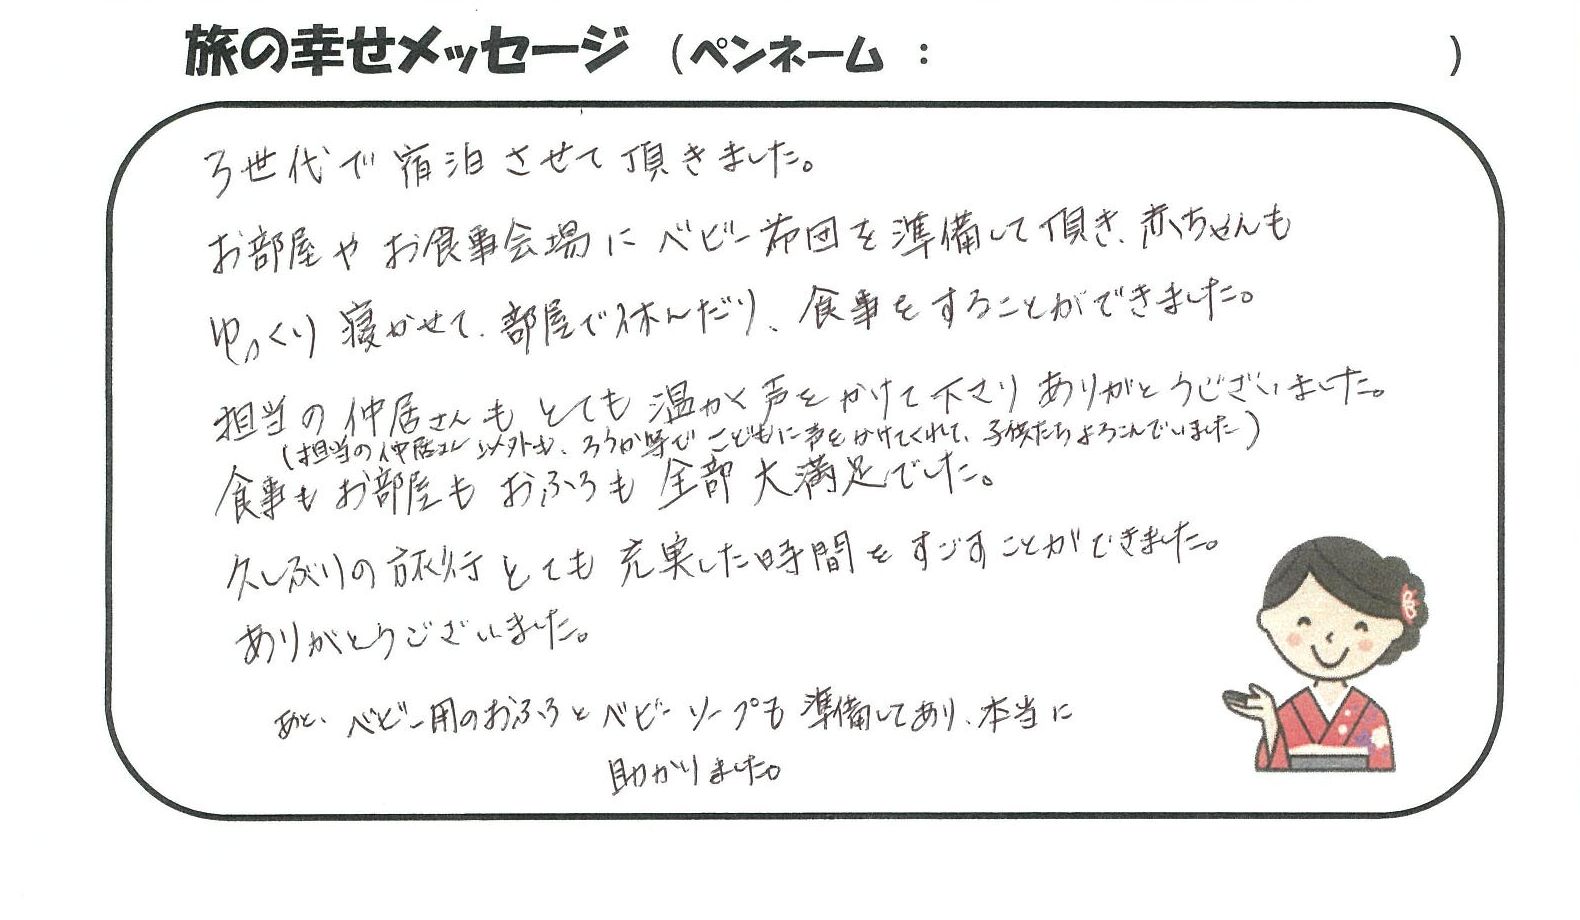 旅の幸せメッセージ (ペンネーム : )
3世代で宿泊させて頂きました。
お部屋やお食事会場にベビー布団を準備して頂き、赤ちゃんも
ゆっくり寝かせて、部屋で休んだり、食事をすることができました。
担当の仲居さんもとても温かく声をかけて下さりありがとうございました。
(担当の仲居さん以外も、ろうか等でこどもに声をかけてくれて、子供たちよろこんでいました)
食事もお部屋もおふろも全部大満足でした。
久しぶりの旅行とても充実した時間をすごすことができました。
ありがとうございました。
あと、ベビー用のおふろとベビーソープも準備してあり、本当に
助かりました。